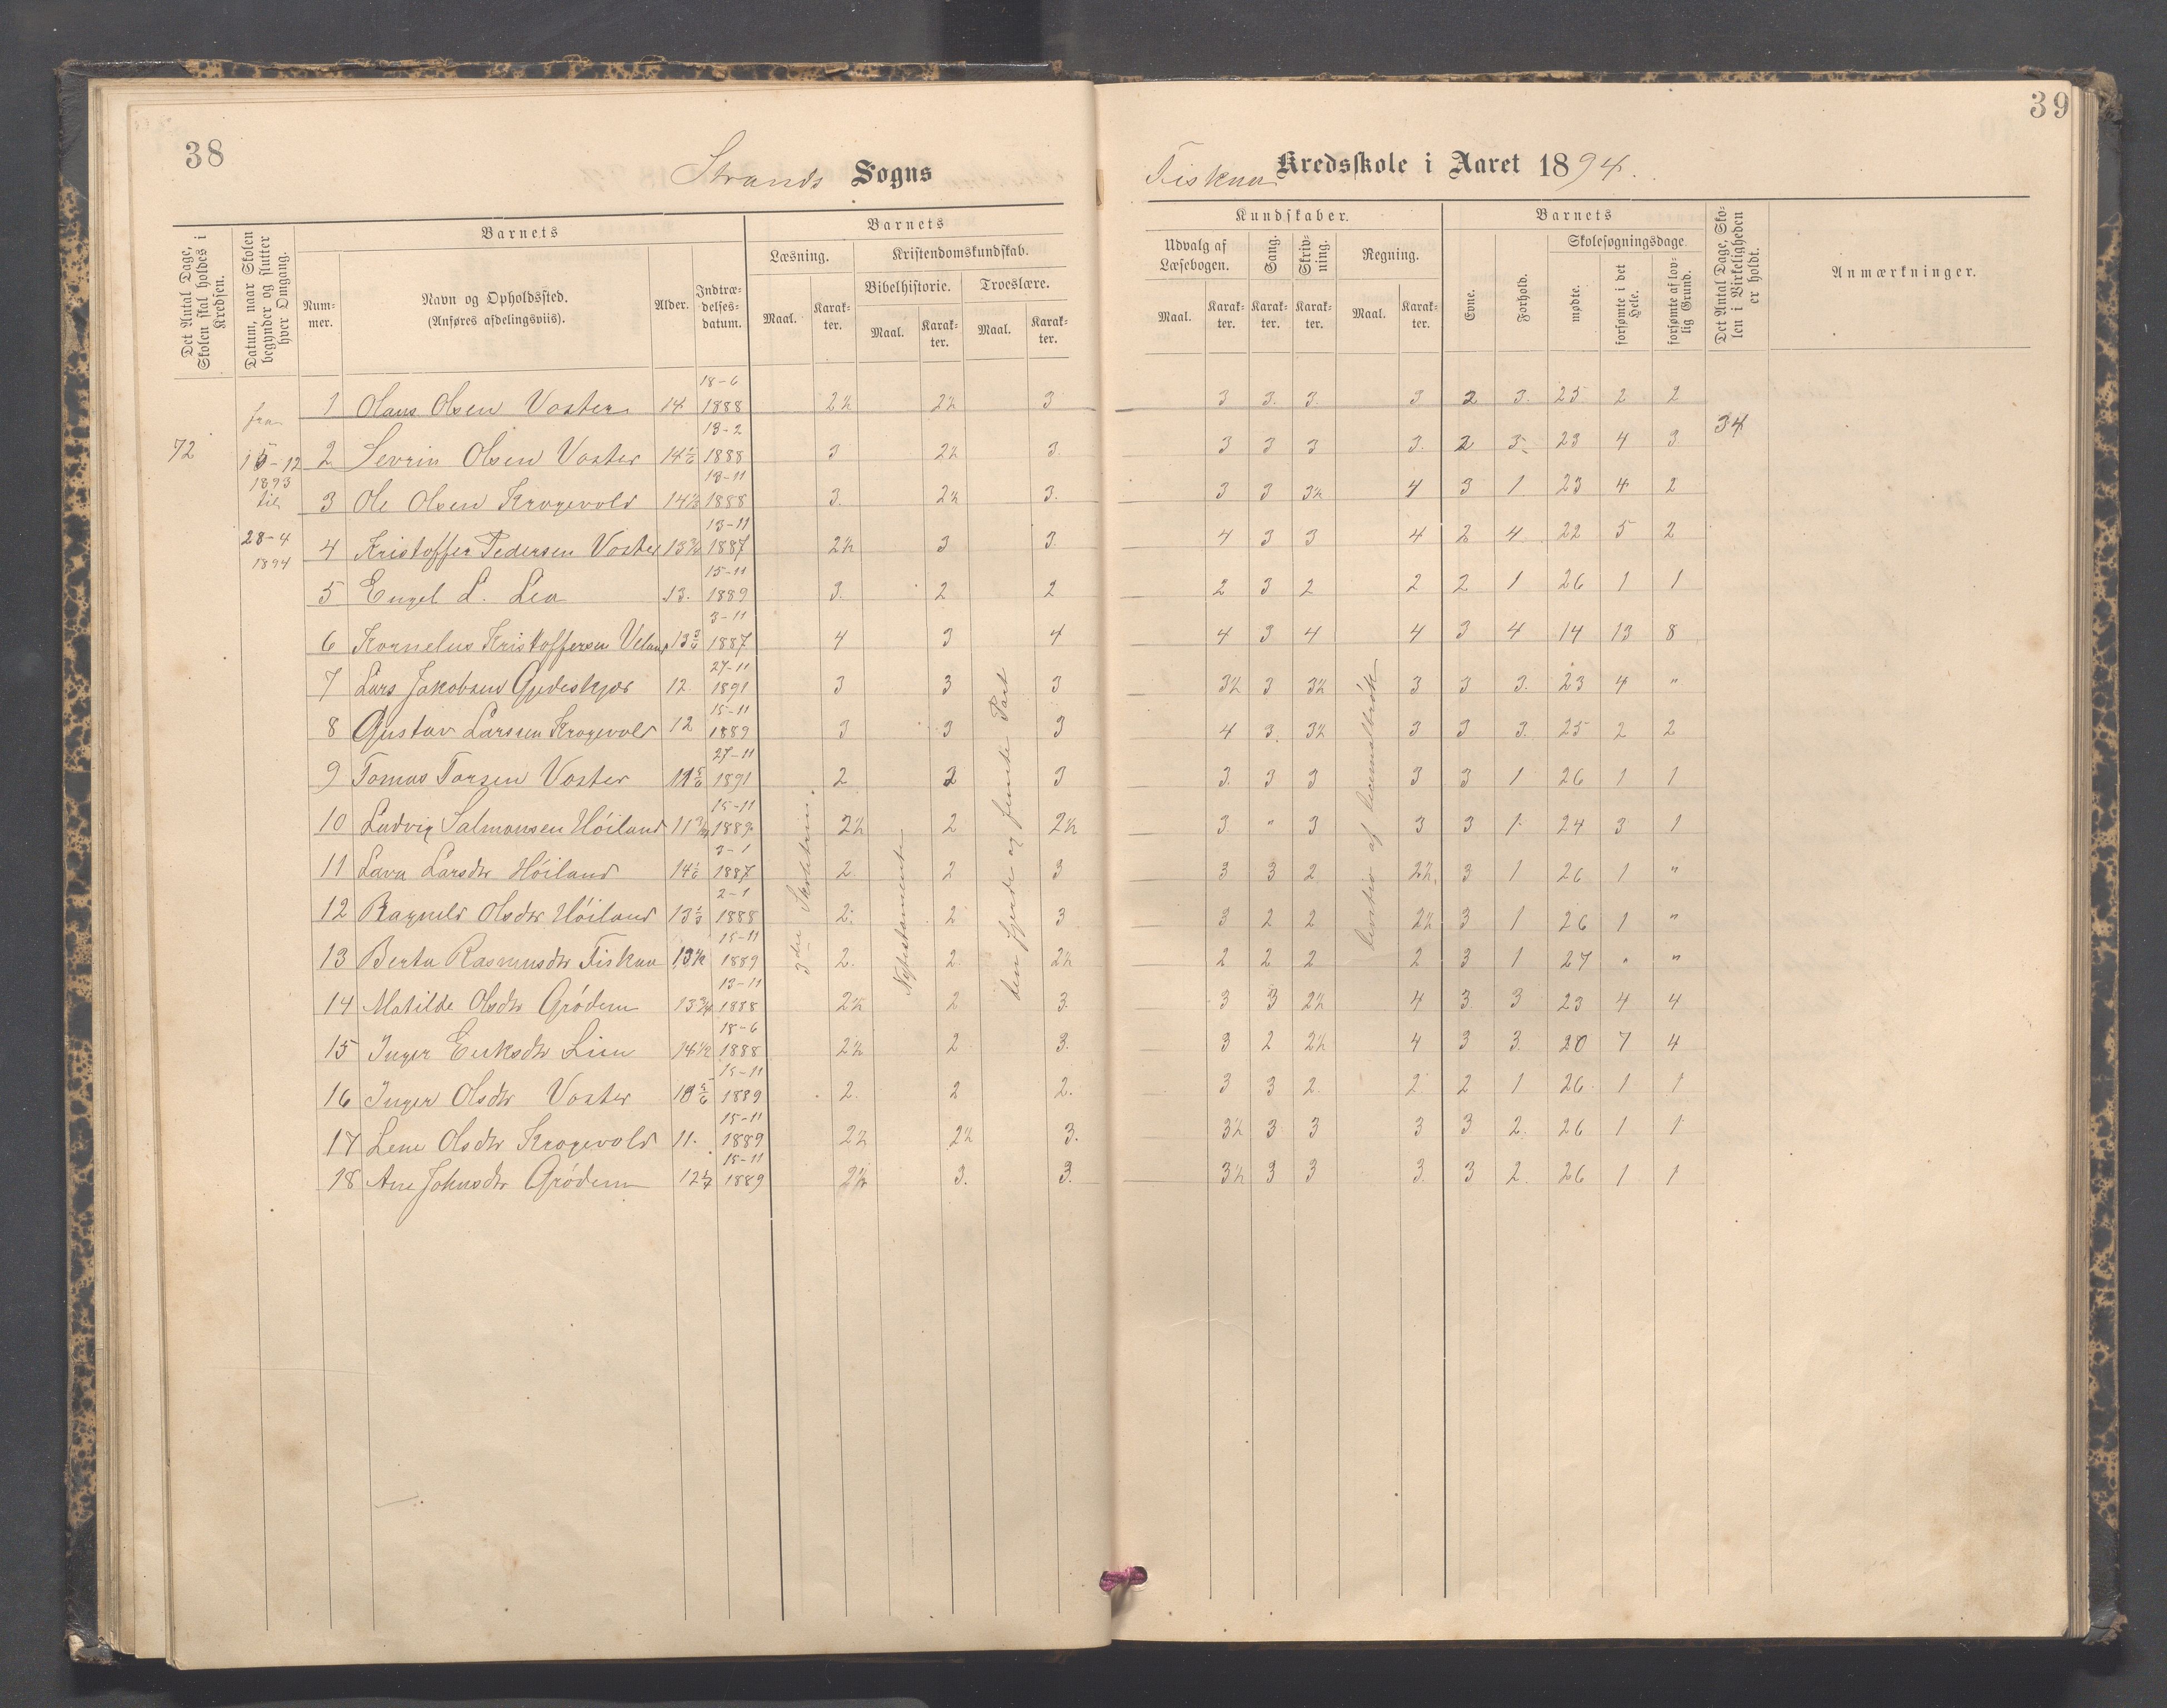 38
Strands Sogns
Det Antal Dage, Skolen skal holdes i Kredsen.
Datum, naar Skolen begynder og slutter hver Omgang.
Barnets
Num-mer.
Navn og Opholdssted.
(Anføres afdelingsviis).
Alder.
Indtræ-delses-datum.
Barnets
Læsning.
Kristendomskundskab.
Bibelhistorie. Troeslære.
Maal. Karak-ter. Maal. Karak-ter. Maal. Karak-ter.
72
fra
15-12
1893
til
28-4
1894
1 Olaus Olsen Voster 14 18-6 1888 2½ 2½ 3
2 Sevrin Olsen Voster 14 1/6 13-2 1888 3 2½ 3.
3 Ole Olsen Krogevold 14½ 13-11 1888 3. 2½ 3.
4 Kristoffer Pedersen Voster 13¾ 13-11 1887 2½ 3 3.
5 Engel L. Lea 13. 15-11 1889 3. 2 2
6 Kornelus Kristoffersen Veland 13 3-11 1887 4 3 4
7 Lars Jakobsen Gjedeskjær 12. 27-11 1891 3 3 3
8 Gustav Larssen Krogevold 12 15-11 1889 3 3 3
9 Tomas Torsen Voster 11 5/6 27-11 1891 2 2 3
10 Ludvig Salmonsen Höiland 11¾ 15-11 1889 2½ 2 2½
11 Lava Larsdtr Höiland 14 1/6 3-1 1887 2 2 3
12 Ragnild Olsdtr Höiland 13 1/3 2-1 1888 2. 2 3
13 Berta Rasmusdtr Fiskaa 13½ 15-11 1889 2. 2 2½
14 Matilde Olsdtr Grödem 13¾ 13-11 1888 2½ 2 3.
15 Inger Eriksdtr Lien 14½ 18-6 1888 2½ 2 3.
16 Inger Olsdtr Voster 10 5/6 15-11 1889 2. 2 2.
17 Lene Olsdtr Krogevold 11. 15-11 1889 2½ 2½ 3.
18 Ane Johnsdtr Grödem 12 15-11 1889 2½ 3. 3.
3die Skoletrin.
Nytestamente
den fjerde og femte Part
39
Fiskaa Kredsskole i Aaret 1894.
Kundskaber.
Udvalg af Læsebogen.
Sang.
Skriv-ning.
Regning.
Maal. Karak-ter. Karak-ter. Karak-ter. Maal. Karak-ter.
Barnets
Evne.
Forhold.
Skolesøgningsdage
mødte.
forsømte i det Hele.
forsømte af lov-lig Grund.
Det Antal Dage, Sko-len i Virkeligheden er holdt.
Anmærkninger.
3 3. 3. 3 2 3. 25 2 2
34
3 3 3 3. 2 3. 23 4 3
3 3 3½ 4 3 1 23 4 2
4 3 3 4 2 4 22 5 2
2 3 2 2 2 1 26 1 1
4 3 4 4 3 4 14 13 8
3½ 3 3½ 3 3 3. 23 4 "
4 3. 3½ 3 3 3. 25 2 2
3. 3 3 3 3 1 26 1 1
3 " 3 3 3 1 24 3 1
3 3 2 2½ 3 1 26 1 "
3 2 2 2½ 3 1 26 1 "
2 2 2 2 3 1 27 " "
3 3 2½ 4 3. 3 23 4 4
3 2 2½ 4 3 3 20 7 4
3 3 2 2 2 1 26 1 1
3½ 3 3 3 3 2. 26 1 1
3½ 3 3 3. 3 2. 26 1 1
af decimalbrök